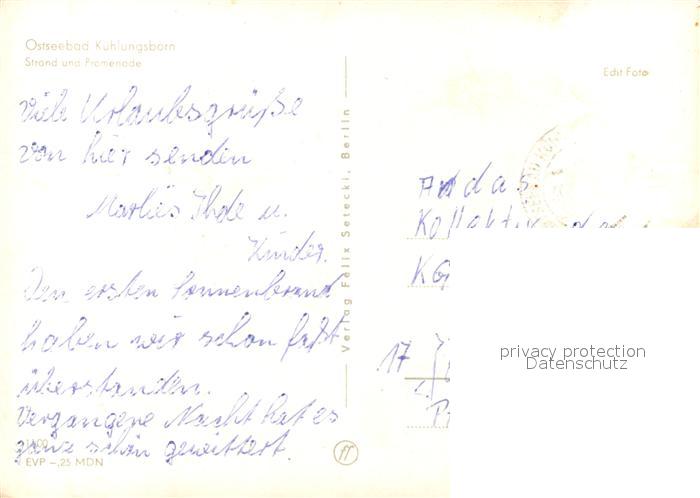 Ostseebad Kühlungsborn
Strand und Promenade
Echt Foto
Viele Urlaubsgrüße
von hier senden
Marlies Thde u.
Kinder.
Den ersten Sonnenbrand
haben wir schon fast
überstanden.
Vergangene Nacht hat es
ganz schön gewittert.
EVP -,25 MDN
Verlag Felix Setecki, Berlin
An das
Kollektiv de
KG
17
privacy protection
Datenschutz